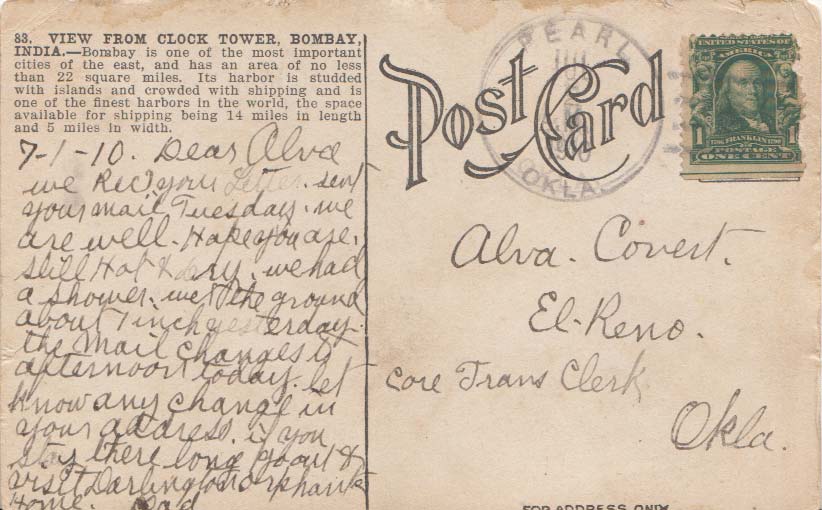 83. VIEW FROM CLOCK TOWER, BOMBAY,
INDIA.—Bombay is one of the most important
cities of the east, and has an area of no less
than 22 square miles. Its harbor is studded
with islands and crowded with shipping and is
one of the finest harbors in the world, the space
available for shipping being 14 miles in length
and 5 miles in width.
7-1-10. Dear Alva
we Recd your Letter. sent
your mail Tuesday. we
are well. Hope you are.
still Hot & dry. we had
a shower. wet the ground
about 1 inch yesterday.
the mail changes to
afternoon today. let
know any change in
your address. if you
stay there long go out &
visit Darlington orphants
Home. Dad
Post Card
PEARL
OKLA.
UNITED STATES OF
AMERICA
1 FRANKLIN 1
POSTAGE
ONE CENT
Alva. Covert.
El-Reno.
Core Trans Clerk
Okla.
FOR ADDRESS ONLY